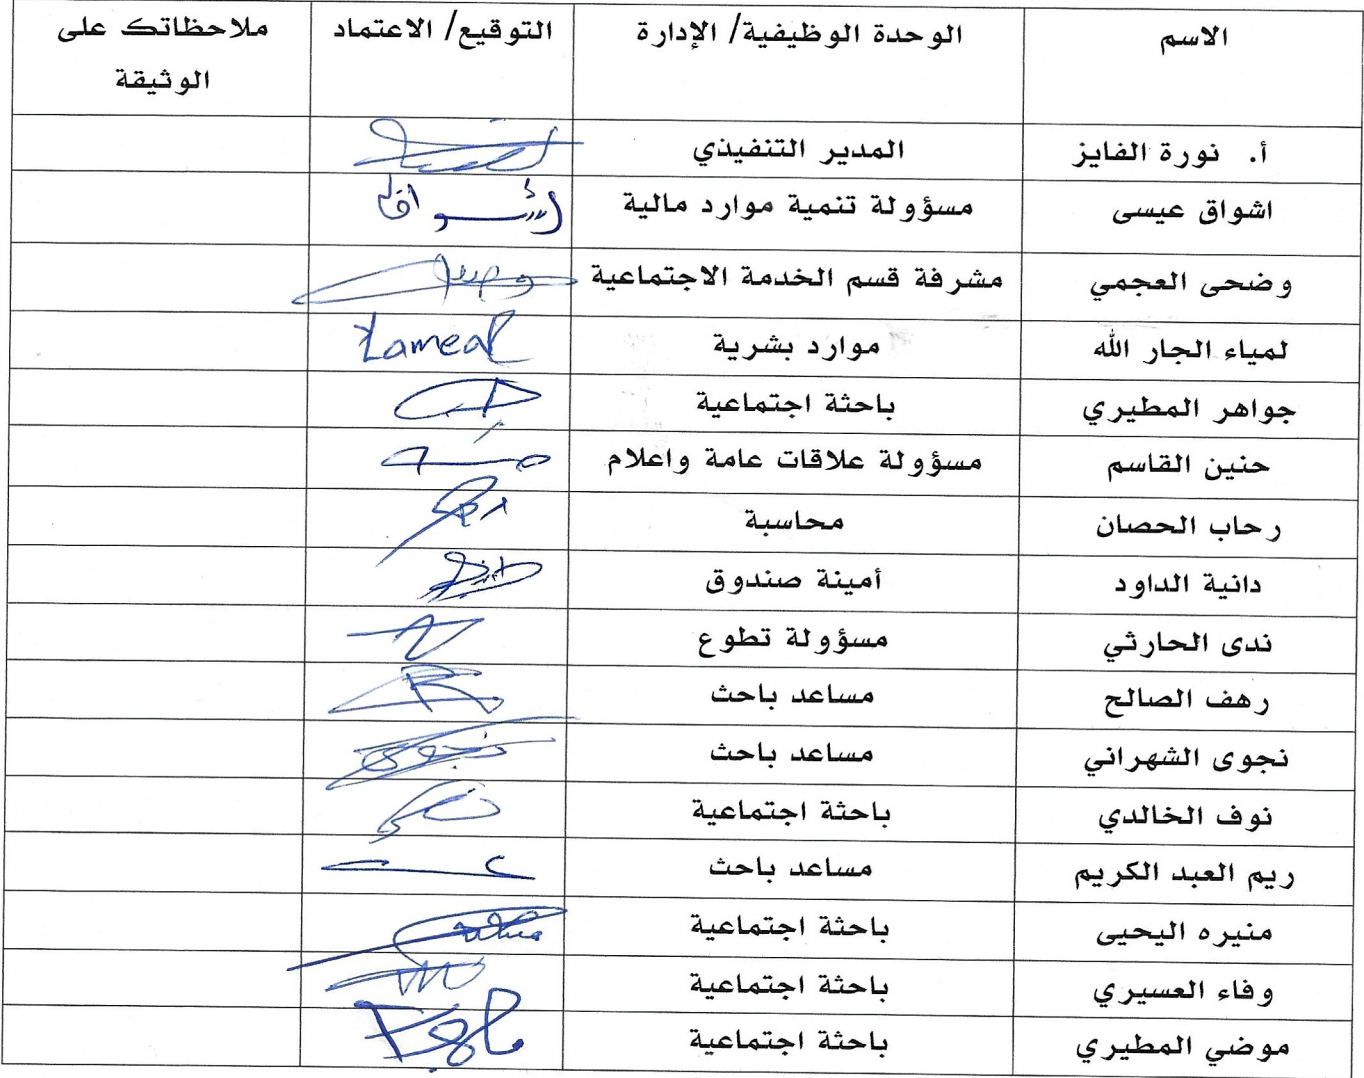 الاسم الوحدة الوظيفية/ الإدارة التوقيع/ الاعتماد ملاحظاتك على
الوثيقة
أ. نورة الفايز المدير التنفيذي
اشواق عيسى مسؤولة تنمية موارد مالية اشواق
وضحى العجمي مشرفة قسم الخدمة الاجتماعية
لمياء الجار الله موارد بشرية Lamea
جواهر المطيري باحثة اجتماعية
حنين القاسم مسؤولة علاقات عامة واعلام
رحاب الحصان محاسبة
دانية الداود أمينة صندوق
ندى الحارثي مسؤولة تطوع
رهف الصالح مساعد باحث
نجوى الشهراني مساعد باحث نجوى
نوف الخالدي باحثة اجتماعية
ريم العبد الكريم مساعد باحث
منيره اليحيى باحثة اجتماعية
وفاء العسيري باحثة اجتماعية
موضي المطيري باحثة اجتماعية